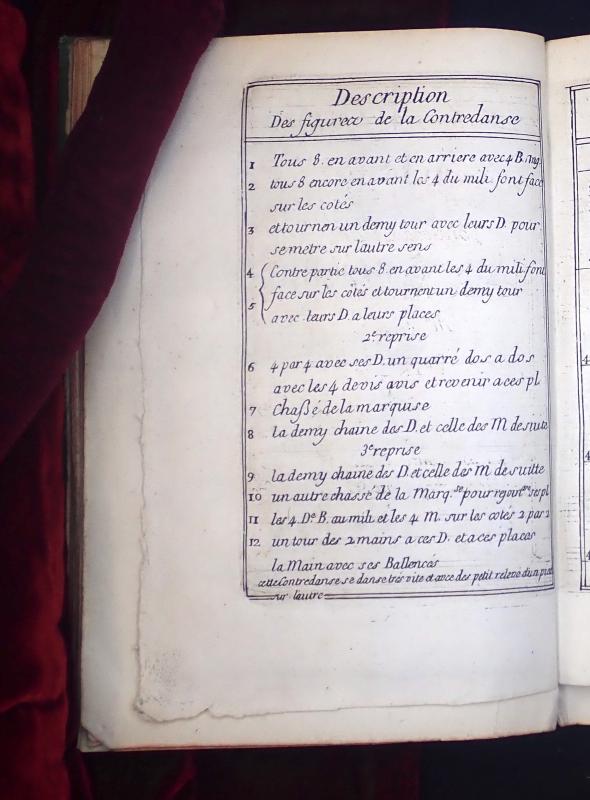 Description
Des figurex de la Contredanse
1 Tous 8. en avant et en arriere avec 4 B.
2 tous 8 encore en avant les 4 du mili font face
sur les cotés
3 et tournen un demy tour avec leurs D. pour
se metre sur lautre sens
4 Contre partie tous 8. en avant les 4 du mili font
face sur les côtés et tournent un demy tour
5 avec leurs D. a leurs places
2e reprise
6 4 par 4 avec ses D. un quarré dos a dos
avec les 4 de vis avis et revenir a ces pl
7 Chassé de la marquise
8 la demy chaine des D. et celle des M de suite
3e reprise
9 la demy chaine des D. et celle des m. de suitte
10 un autre chassé de la Marq.se pour ses pl
11 les 4. De B. au mili et les 4 M. sur les cotés 2 par 2
12 un tour des 2 mains a ces D. et a ces places
la Main avec ses Ballencés
cette Contredanse se danse trés vite et avec des petit relevé d'un pied
sur lautre
4
4
4